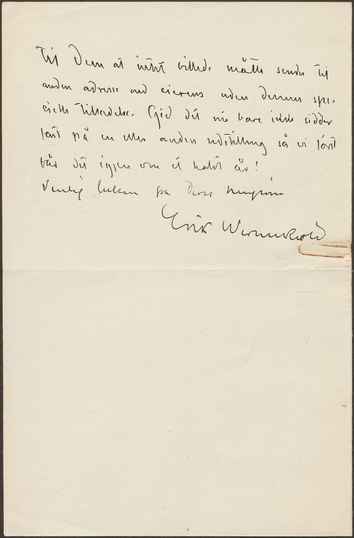 til Dem at intet billede måtte sendes til
anden adresse end eierens uden dennes spe-
cielle tilladelse. Gid det nu bare ikke sidder
fast på en eller anden udstilling så vi først
får det igjen om et halvt år!
Venlig hilsen fra Deres
Erik Werenskiold